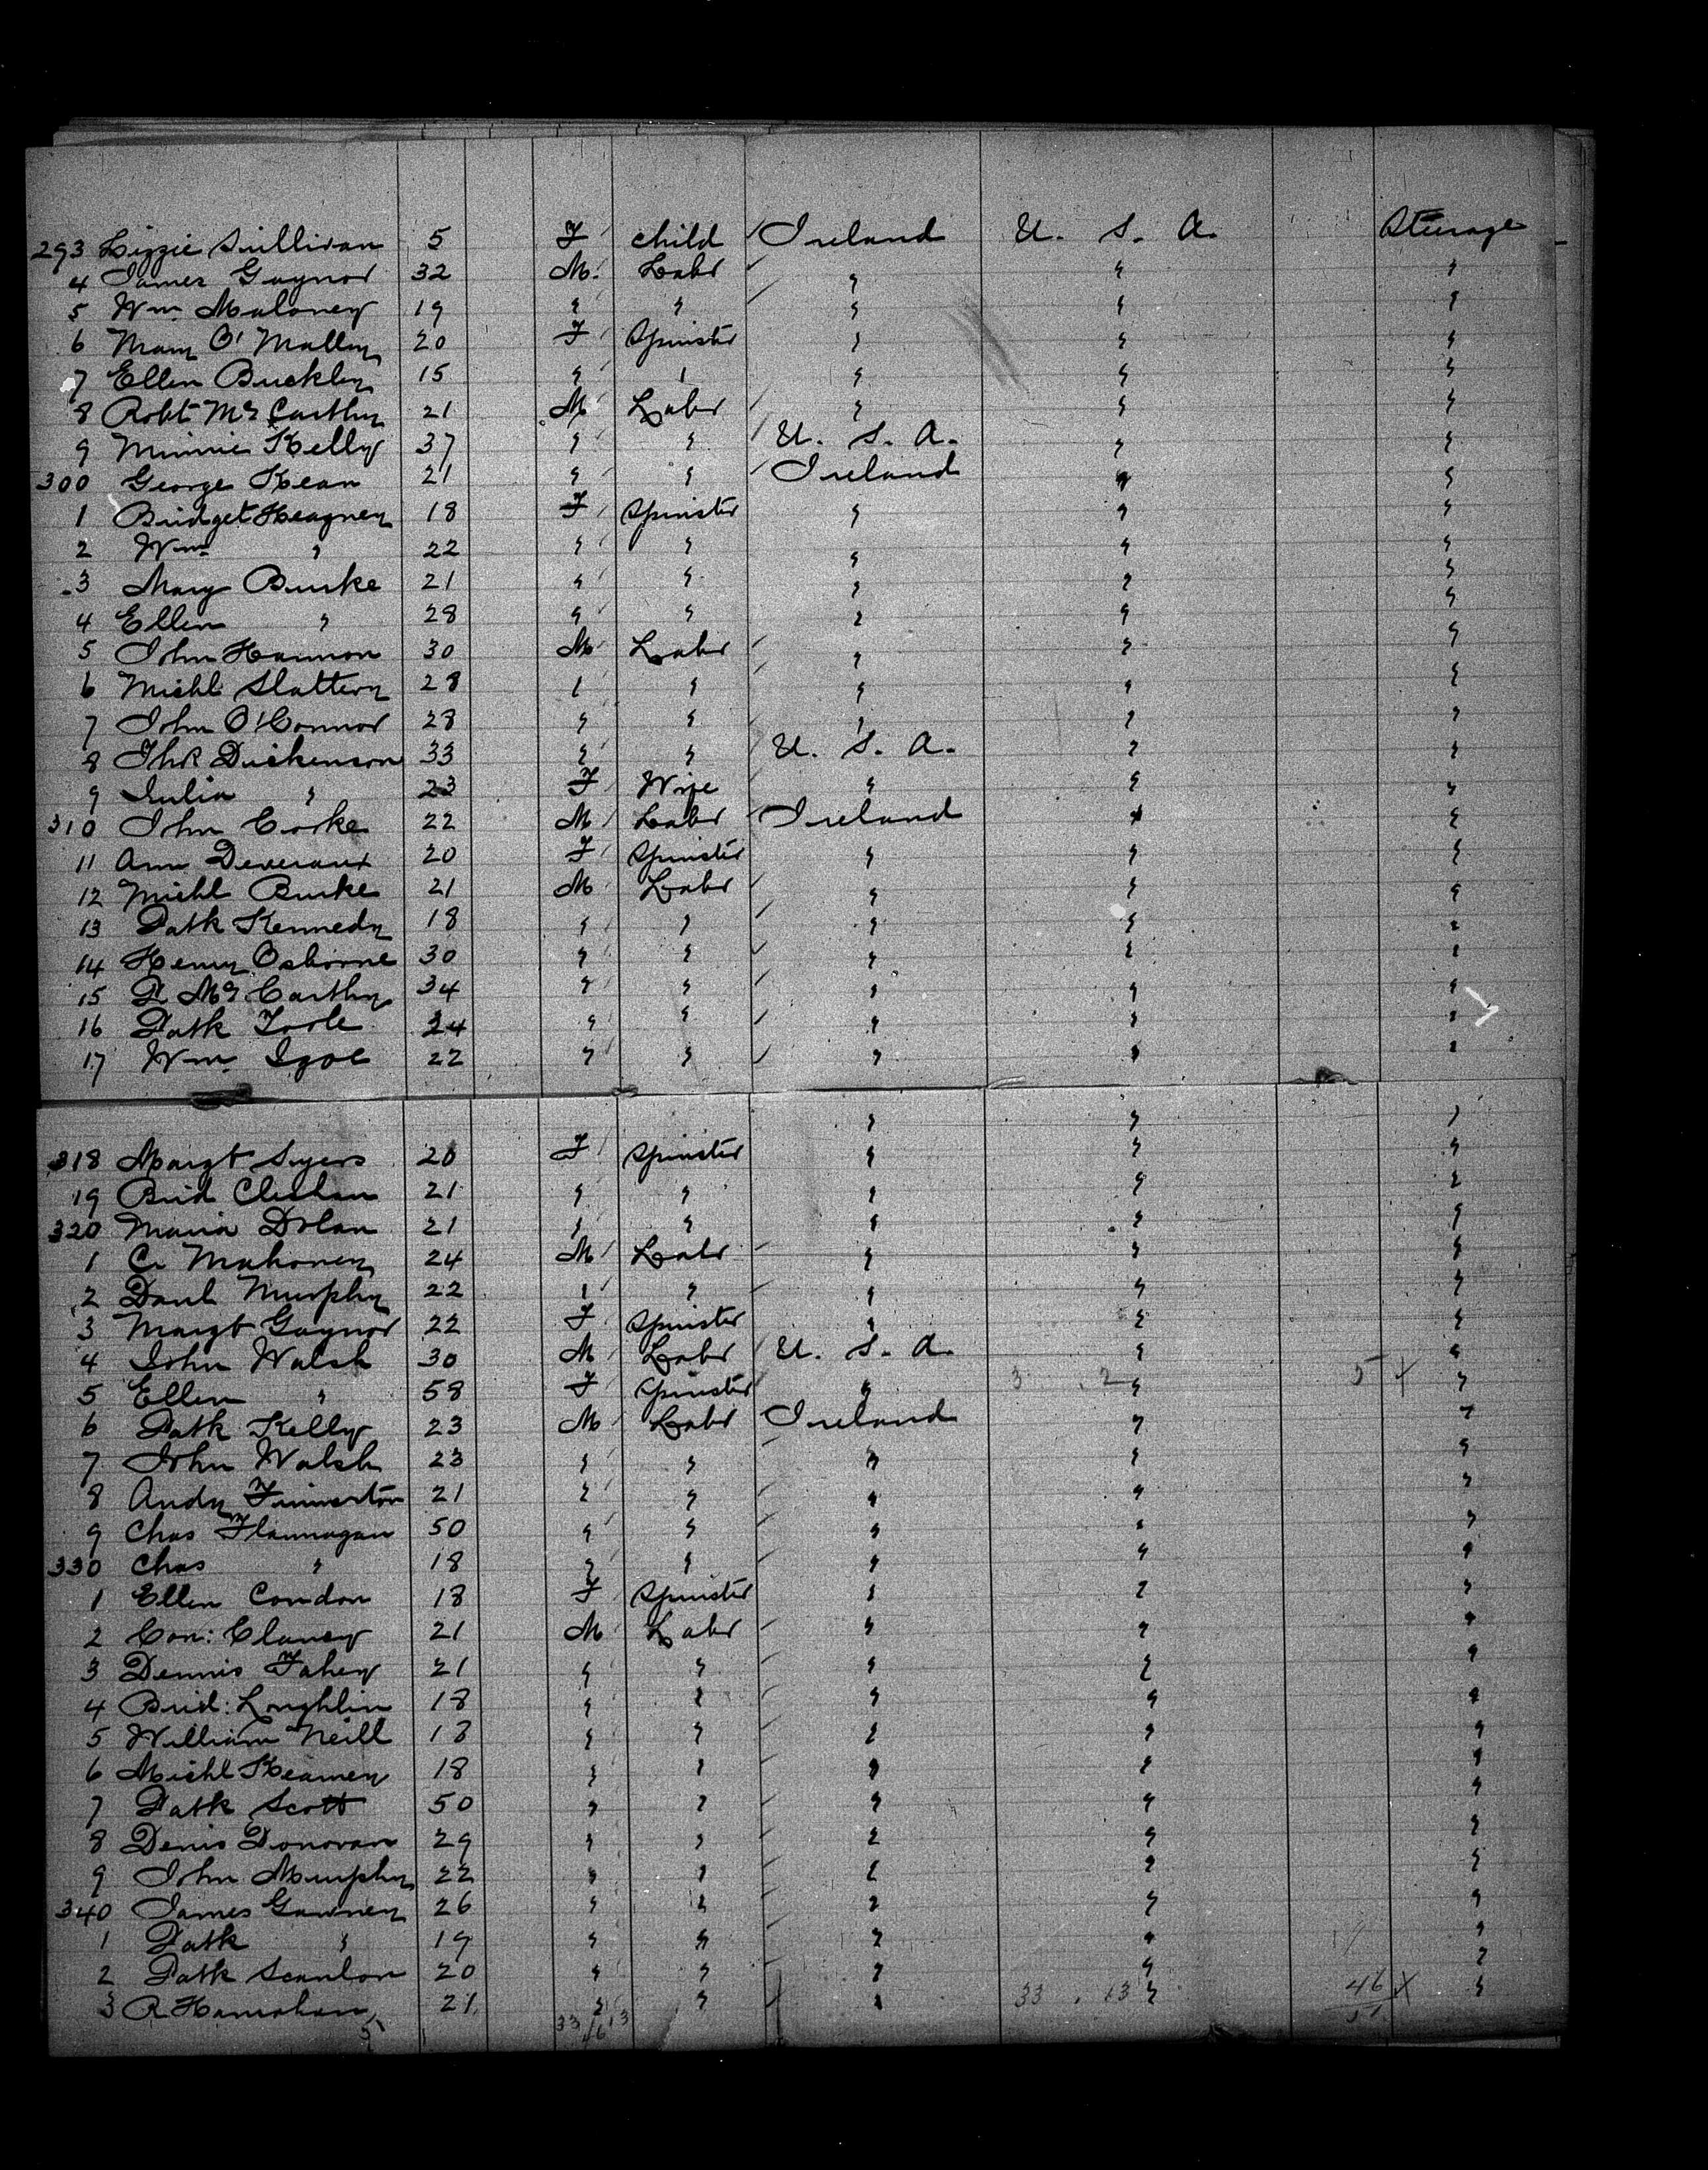 293 Lizzie Sullivan 5 F child Ireland U. S. A. Steerage
4 James Gaynor 32 M. Labr " " "
5 Wm Maloney 19 " " " " "
6 Mary O'Malley 20 F Spinster " " "
7 Ellen Buckley 15 " " " " "
8 Robt McCarthy 21 M Labr " " "
9 Minnie Kelly 37 " " U. S. A. " "
300 George Kean 21 " " Ireland " "
1 Bridget Heagney 18 F Spinster " " "
2 Wm " 22 " " " " "
3 Mary Burke 21 " " " " "
4 Ellen " 28 " " " " "
5 John Hannon 30 M Labr " " "
6 Michl Slattery 28 " " " " "
7 John O'Connor 28 " " " " "
8 Dickenson 33 " " U. S. A. " "
9 Julia " 23 F Wife " " "
310 John Corke 22 M Labr Ireland " "
11 Ann Deveraux 20 F Spinster " " "
12 Michl Burke 21 M Labr " " "
13 Patk Kennedy 18 " " " " "
14 Henry Osborne 30 " " " " "
15 P McCarthy 34 " " " " "
16 Patk Toole 24 " " " " "
17 Wm Igoe 22 " " " " "
" " "
318 Margt Syers 20 F Spinster " " "
19 Brid 21 " " " " "
320 Maria Dolan 21 " " " " "
1 C. Mahoney 24 M Labr " " "
2 Danl Murphy 22 " " " " "
3 Margt Gaynor 22 F Spinster " " "
4 John Walsh 30 M Labr U. S. A. " "
5 Ellen " 58 F Spinster " 3 . 2 " 5 X "
6 Patk Kelly 23 M Labr Ireland " "
7 John Walsh 23 " " " " "
8 Andy Finnerton 21 " " " " "
9 Chas Flannagan 50 " " " " "
330 Chas " 18 " " " " "
1 Ellen Condon 18 F Spinster " " "
2 Con: Clancy 21 M Labr " " "
3 Dennis Fahey 21 " " " " "
4 Brid: Loughlin 18 " " " " "
5 William Neill 18 " " " " "
6 Michl Keamey 18 " " " " "
7 Patk Scott 50 " " " " "
8 Denis Donovan 29 " " " " "
9 John Murphy 22 " " " " "
340 James Gawney 26 " " " " "
1 Patk " 19 " " " " "
2 Patk Scanlon 20 " " " " "
3 R Hanrahan 21 " " " 33 . 13 " 46 X "
33 / 13 51
46